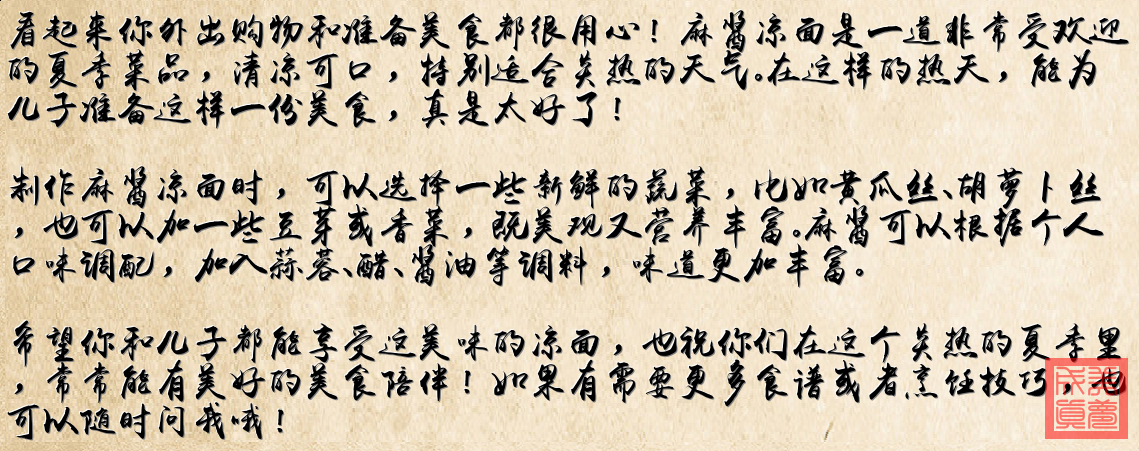 看起来你外出购物和准备美食都很用心！麻酱凉面是一道非常受欢迎
的夏季菜品，清凉可口，特别适合炎热的天气。在这样的热天，能为
儿子准备这样一份美食，真是太好了！
制作麻酱凉面时，可以选择一些新鲜的蔬菜，比如黄瓜丝、胡萝卜丝
，也可以加一些豆芽或香菜，既美观又营养丰富。麻酱可以根据个人
口味调配，加入蒜蓉、醋、酱油等调料，味道更加丰富。
希望你和儿子都能享受这美味的凉面，也祝你们在这个炎热的夏季里
，常常能有美好的美食陪伴！如果有需要更多食谱或者烹饪技巧，也
可以随时问我哦！